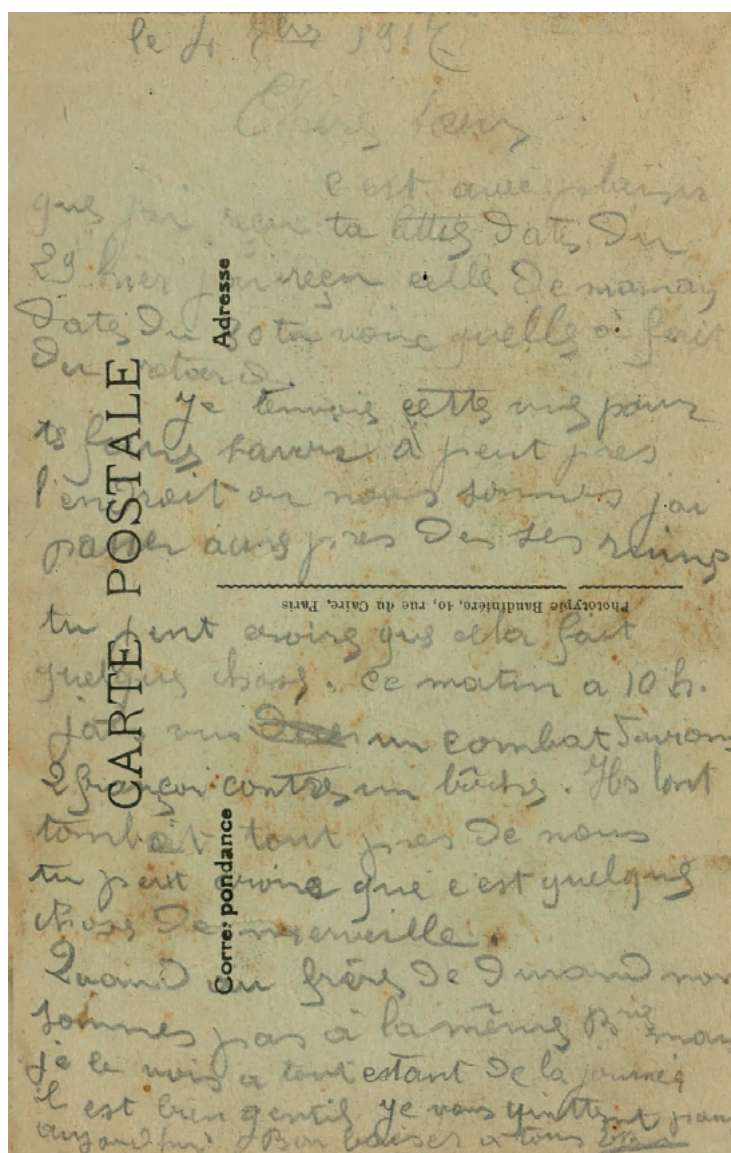 le 4 7bre 1917
Chère sœur
c est avec plaisir
que jai reçu ta lettre date du
29 hier jai reçu celle de maman
date du 30 tu voix quelle à fait
du retard.
Je tenvois cette vue pour
te faire savoir à peut pres
l'endroit ou nous sommes jai
passer aupres des ses ruine
tu peut croire que cela fait
quelque chose. ce matin a 10 h.
jai vus un combat davions
2 françai contre un bôche. Ils lont
tombait tout pres de nous
tu peut croire que c est quelque
chose de merveille.
Quand au frère de Durand nous
sommes pas à la même Bie mais
je le vois a tout estant de la journée
il est bien gentil Je vous quittent pour
aujourdhui Bon baiser a tous
CARTE POSTALE
Correspondance
Adresse
Phototypie Baudinière, 40, rue du Caire, Paris